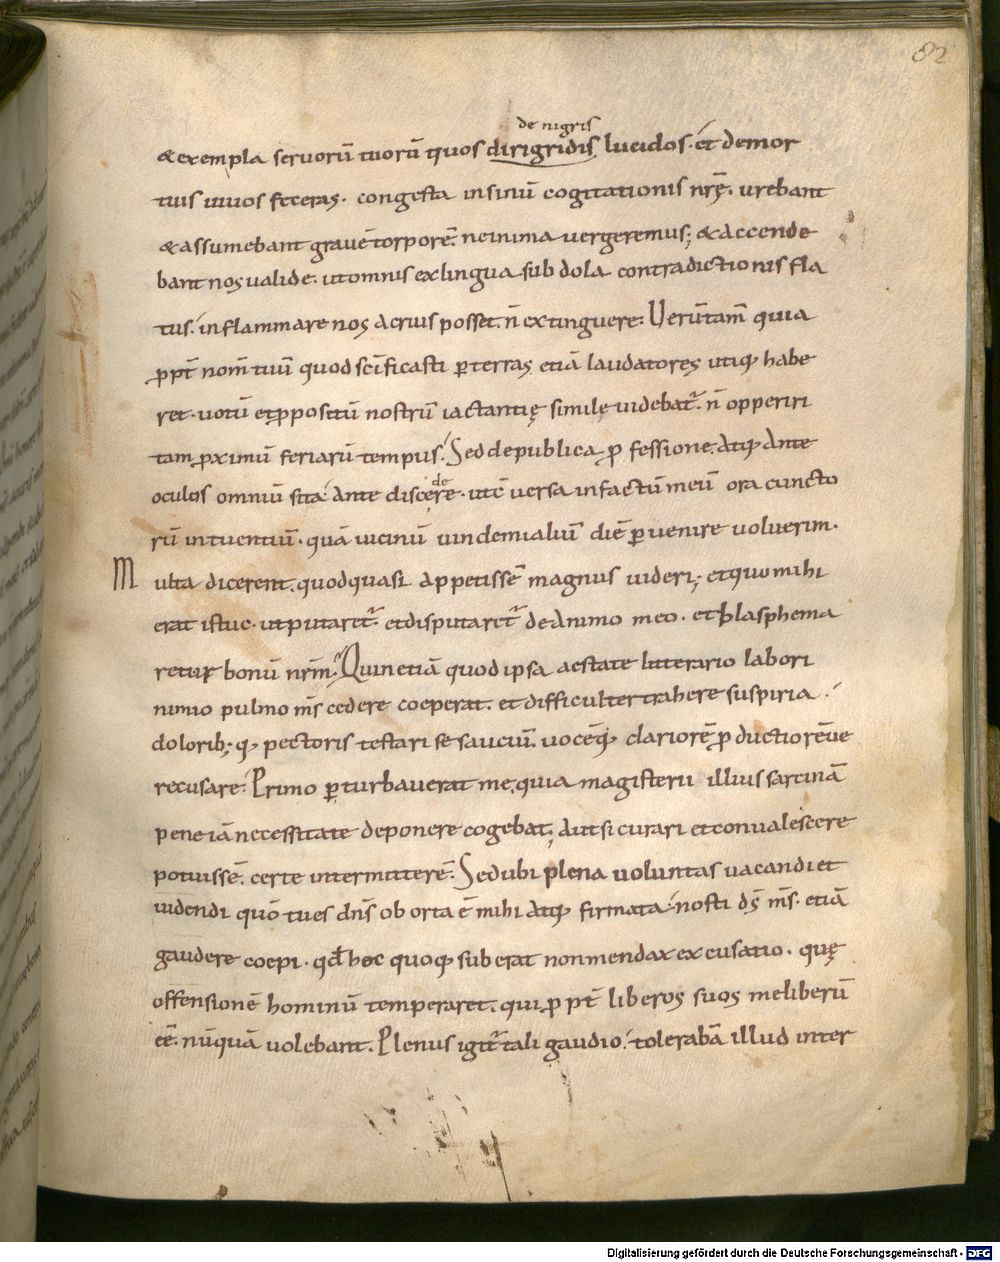 82
de nigris
& exempla servorū tuorū quos dirigridis lucidos. et demor
tuis vivos feceras. congesta insinū cogitationis nrę. urebant
& assumebant gravē torporē. neinima vergeremus; & accende
bant nos valide. ut omnis ex lingua subdola contradictionis fla
tus. inflammare nos acrius posset. n̄ extinguere. Verūtam̄ quia
ꝓpt̄ nom̄ tuū quod sc̄ificasti ꝑ terras etiā laudatores utiq; habe
ret. votū et ꝓpositū nostrū iactantię similę videbat̄. n̄ opperiri
tam ꝓximū feriarū tempus. Sed de publica ꝓfessione. atq; ante
oculos omniū sita ante discere. ut c̄versa in factū meū ora cuncto
de
rū intuentiū. quā vicinū vindemialiū diē ꝑvenire voluerim.
Multa dicerent. quod quasi appetissē magnus videri; et quo mihi
erat istuc. ut putaret̄. et disputaret̄ de animo meo. et blasphema
retur bonū nrm̄. Quin etiā quod ipsa aestate litterario labori
nimio pulmo ms̄ cedere coeperat. et difficulter trahere suspiria.
dolorib; q; pectoris testari se sauciū. vocēq; clariorē ꝓductiorēve
recusare. Primo ꝑturbaverat me. quia magisterii illius sarcinā
pene iā necessitate deponere cogebat. aut si curari et convalescere
potuissē. certe intermitterē. Sed ubi plena voluntas vacandi et
videndi quō tu es dn̄s oborta ē mihi atq; firmata. nosti ds̄ ms̄. etiā
gaudere coepi. qđ hęc quoq; suberat non mendax excusatio. quę
offensionē hominū temperaret. qui ꝓpt̄ liberos suos me liberū
eē. nūquā volebant. Plenus igit̄ tali gaudio. tolerabā illud inter
Digitalisierung gefördert durch die Deutsche Forschungsgemeinschaft - DFG